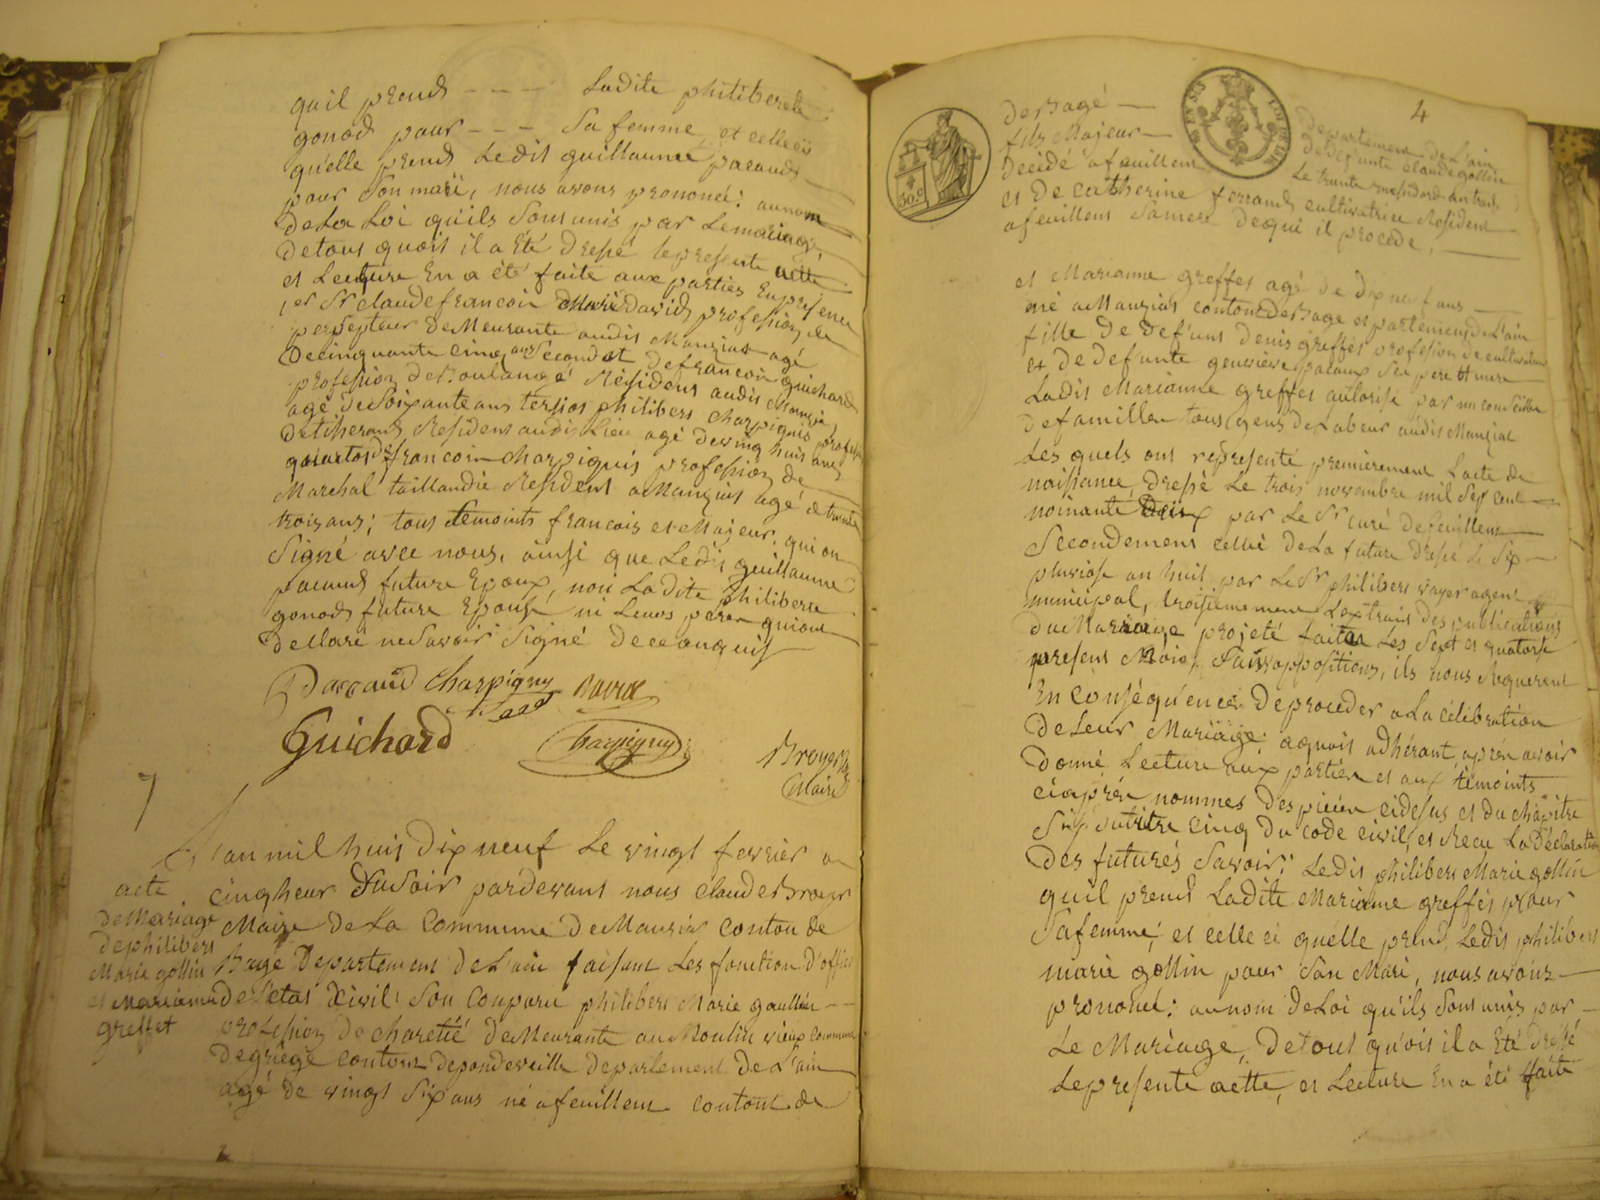 qu'il prend - - - Ladite philiberte
gonod pour - - - Sa femme, et celle ci
qu'elle prend Ledit guillaume pacaud
pour Son mari, nous avons prononcé: au nom
De La Loi qu'ils Sont unis par Le mariage
de tous quois il a Eté Dressé le presente actte
et Lecture En a été faite aux parties En presence
de Sr claude francois Marie David profession de
persepteur De Meurante audit Manziat agé
De cinquante cinq ans Second et de francois guichard
profession de Boulangé Résident audit Manziat
agé de Soixante ans tersios philibert charpignis profession
de tisserand Resident audit Lieu agé de ving huit ans
quartos de francois charpignis profession de
Marchal taillandié Resident a Manziat agé de trente
trois ans; tous temoints francois et Majeur qui on
Signé avec nous, ainsi que Ledit guillaume
pacaud future Epoux, non Ladite philiberte
gonod future Epouse ni Leurs peres qui ont
declaré ne Savoir Signé De ce enquis
Pacaud Charpigny David
Guichard Charpigny Broyer
Maire
7
L'an mil huit Dix neuf Le vingt fevrier a
cinq heur Du Soir pardevant nous claude Broyer
Maire de La Commune De Manziat Conton de
Bagé Departement De L'ain faisant Les fonction D'officié
de L'etat Civil: Son Comparu philibert Marie gaullin - -
profession De charetié De Meurante au Moulin vieux Commune
De griège contont de pondeveille departement de L'ain
agé de vingt Six ans né a feuillent contont de
acte
de Mariage
de philibert
Marie gollin
et Marianne
greffet
4
de Bagé
fils Majeur
Décédé a feuillent
et De catherine ferrand cultivatrice Resident
a feuillent Sa mere De qui il procede,
Departement De L'ain
de defunte claude gollin
Le trente messidor an treize
30 c
et Marianne greffet agé de Dix neuf ans
né a Manziat contont de Bagé et partement De L'ain
fille De Defunt Denis greffet profesion de cultivateur
et De Defunte genevieve pacaux Ses pere et mere
Ladit Marianne greffet autorisé par un conseille
de famille tous gens de Labeur audit Manziat
Les quels ont representé premierement L'acte de
naissance Dressé Le trois novembre mil Sept cent
noinante Deux par Le Sr curé de feuillent
Secondement cellui De La future Dressé Le Six
pluviose an huit par Le Sr philibert voyer agent
municipal, troisiemement L'extrait des publications
Du Mariage projeté faites Les Sept et quatorse
present Mois, Sans oppositions, ils nous Requerent
En Conséquence De proceder a La célébration
De Leur Mariage; aquoit adhérant, après avoir
Donné Lecture aux parties et aux témoints
ciaprés nommés Des pieces ci desus et du chapitre
Six dutitre Cinq Du Code civil, et Recu La Déclaration
Des futures Savoir: Ledit philibert Marie gollin
qu'il prend Ladite Marianne greffet pour
Sa femme, et celle ci qu'elle prend Ledit philibert
marie gollin pour Son Mari, nous avons
prononcé: au nom De Loi qu'ils Sont unis par
Le Mariage, De tout qu'ois il a Eté Dressé
Le presente actte, et Lecture En a été faite